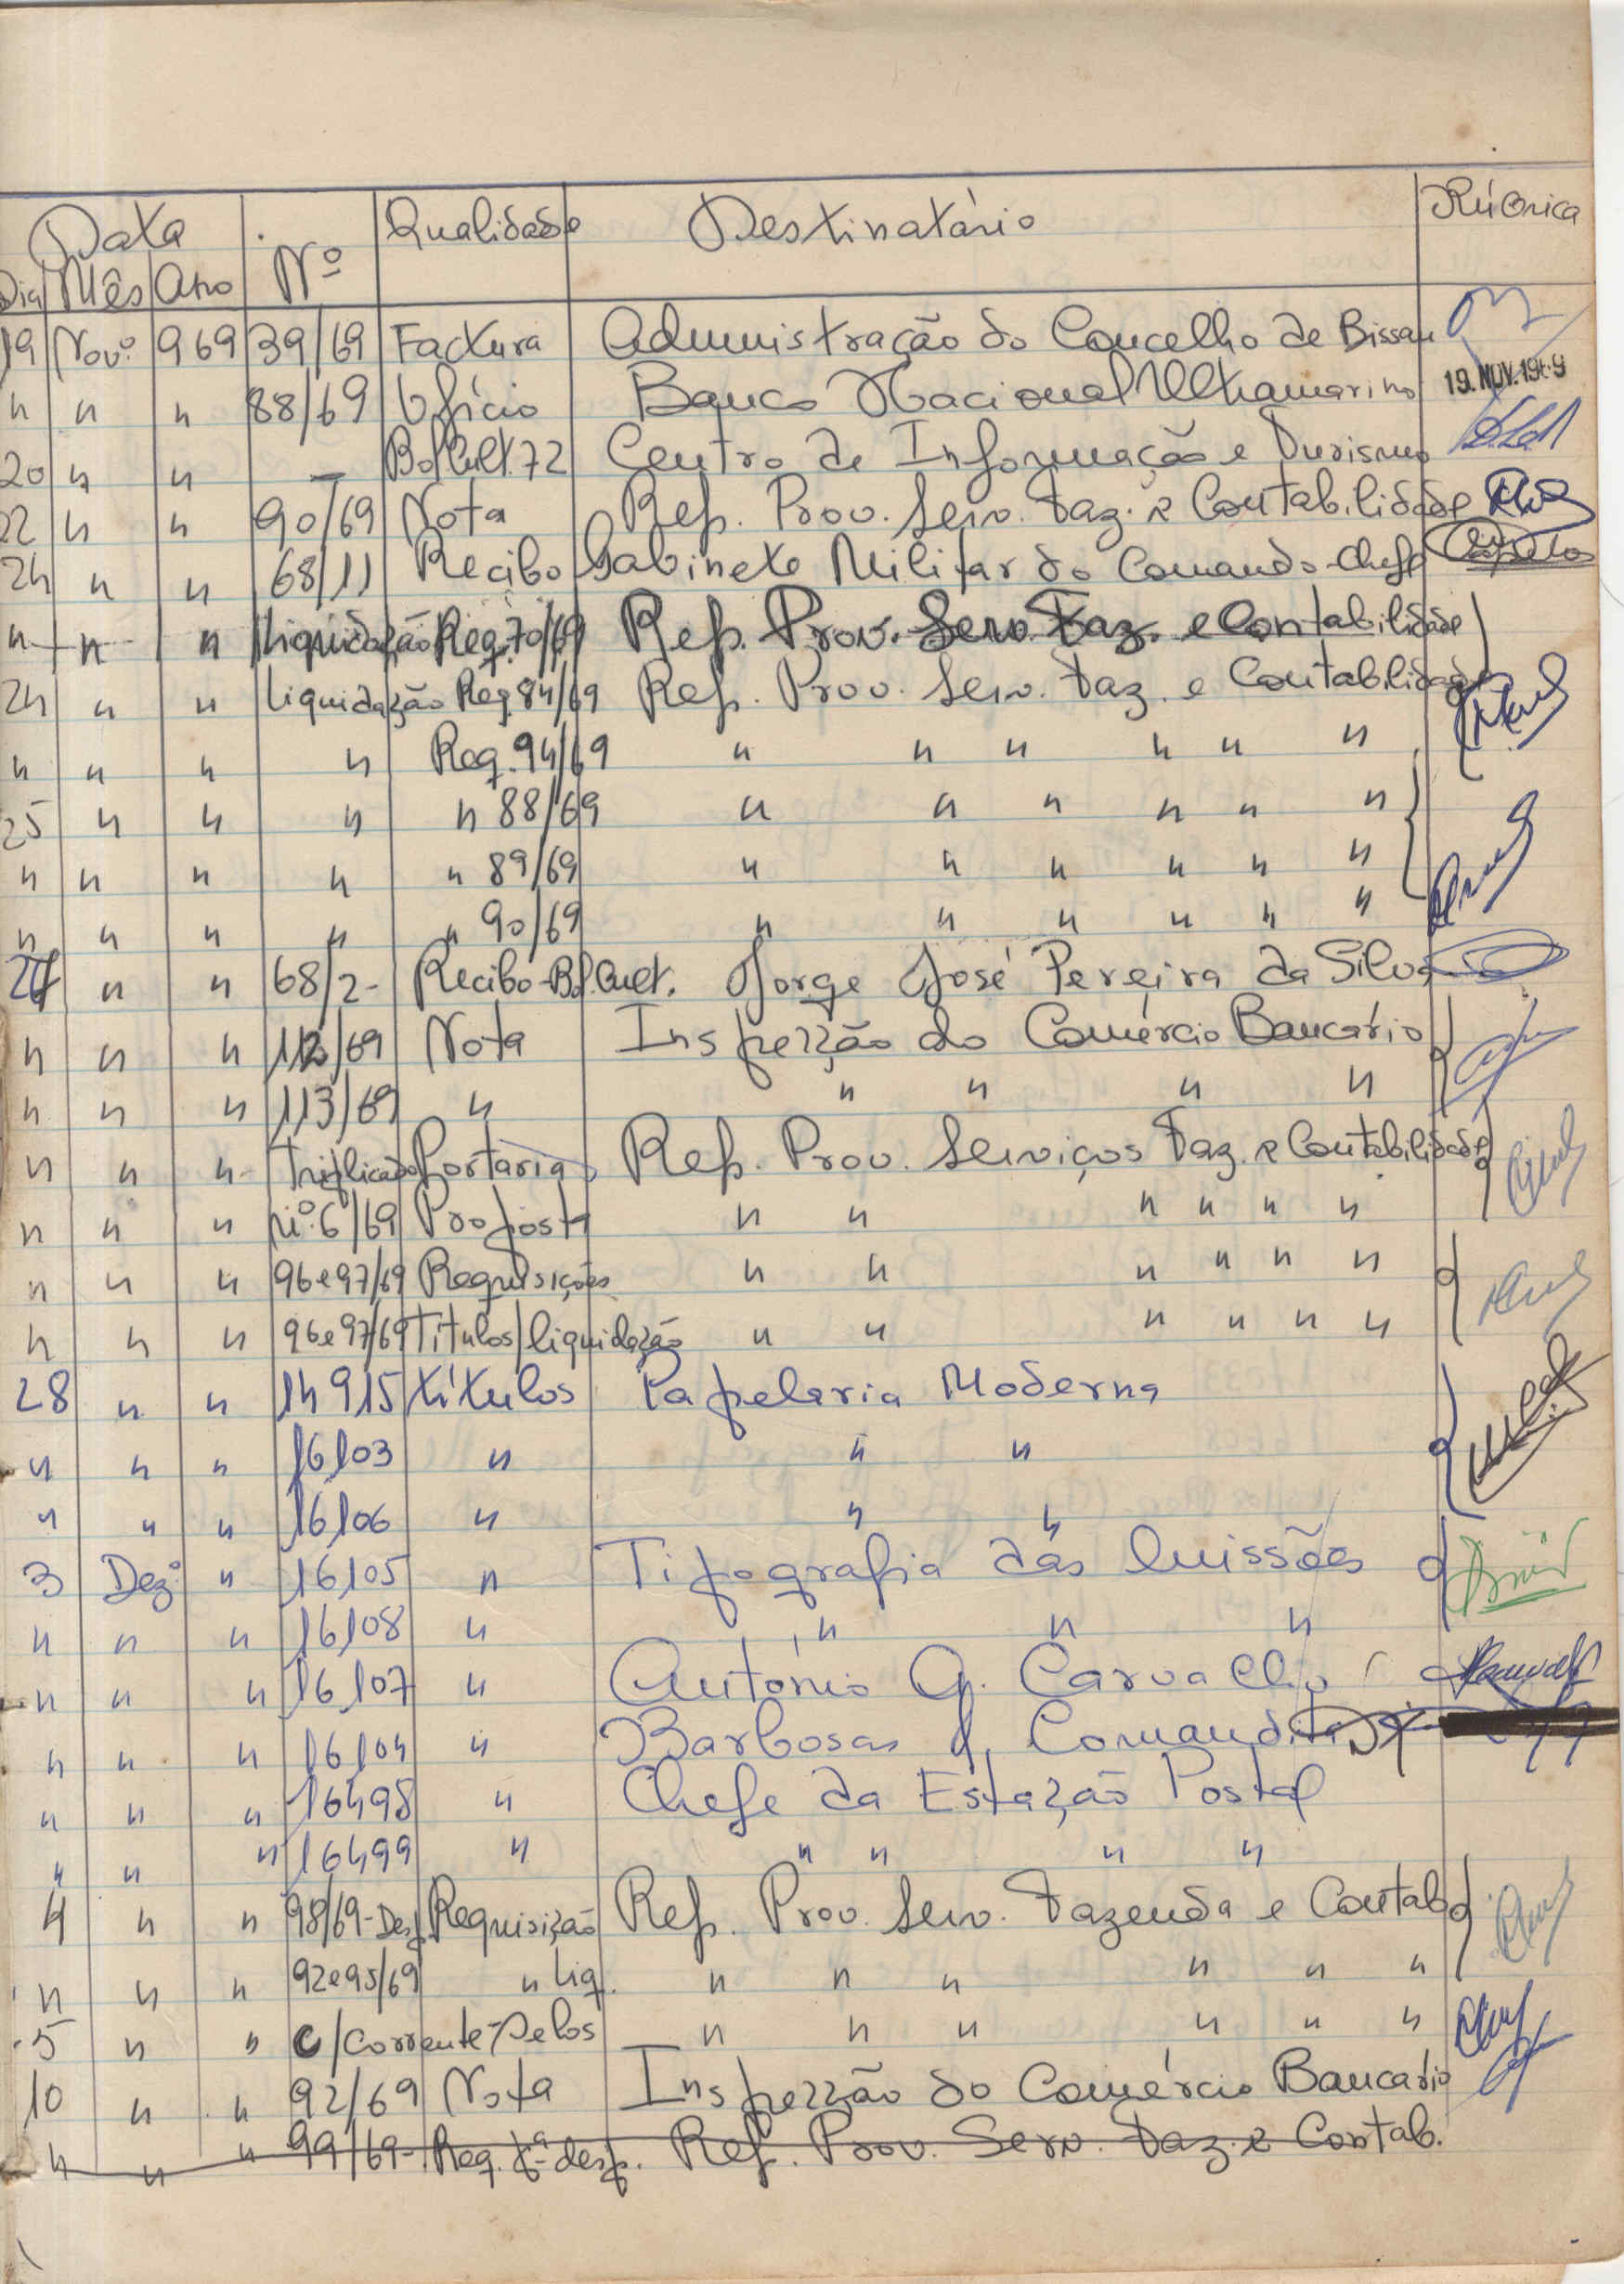 Data Nº Qualidade Destinatário Rúbrica
Dia Mês Ano
19 Novº. 969 39/69 Factura Administração do Concelho de Bissau
" " " 88/69 Ofício Banco Nacional Ultramarino 19.NOV.1969
20 " " — Bol.Cult.72 Centro de Informação e Turismo
22 " " 90/69 Nota Rep. Prov. Serv. Faz. e Contabilidade
24 " " 68/11 Recibo Gabinete Militar do Comando-Chefe
" " " Liquidação Req. 70/69 Rep. Prov. Serv. Faz. e Contabilidade
24 " " Liquidação Req. 84/69 Rep. Prov. Serv. Faz. e Contabilidade
" " " " Req. 94/69 " " " " " "
25 " " " " 88/69 " " " " " "
" " " " " 89/69 " " " " " "
" " " " " 90/69 " " " " " "
" " 68/2- Recibo-Bol.Cult. Jorge José Pereira da Silva
" " " 112/69 Nota Inspecção do Comércio Bancário
" " " 113/69 " " " " "
" " " Triplicado Portaria Rep. Prov. Serviços Faz. e Contabilidade
" " " nº.6/69 Proposta " " " " " "
" " " 96e97/69 Requisições " " " " " "
" " " 96e97/69 Títulos/liquidação " " " " " "
28 " " 14915 títulos Papelaria Moderna
" " " 16103 " " "
" " " 16106 " " "
3 Dezº. " 16105 " Tipografia das Missões
" " " 16108 " " " "
" " " 16107 " António G. Carvalho
" " " 16104 " Barbosas & Comandita
" " " 16498 " Chefe da Estação Postal
" " " 16499 " " " " "
4 " " 98/69-Desp. Requisição Rep. Prov. Serv. Fazenda e Contab.
" " " 92e95/69 " Liq. " " " " " "
5 " " C/Corrente-Selos " " " " " "
10 " " 92/69 Nota Inspecção do Comércio Bancário
" " " 99/69- Req. pª desp. Rep. Prov. Serv. Faz. e Contab.